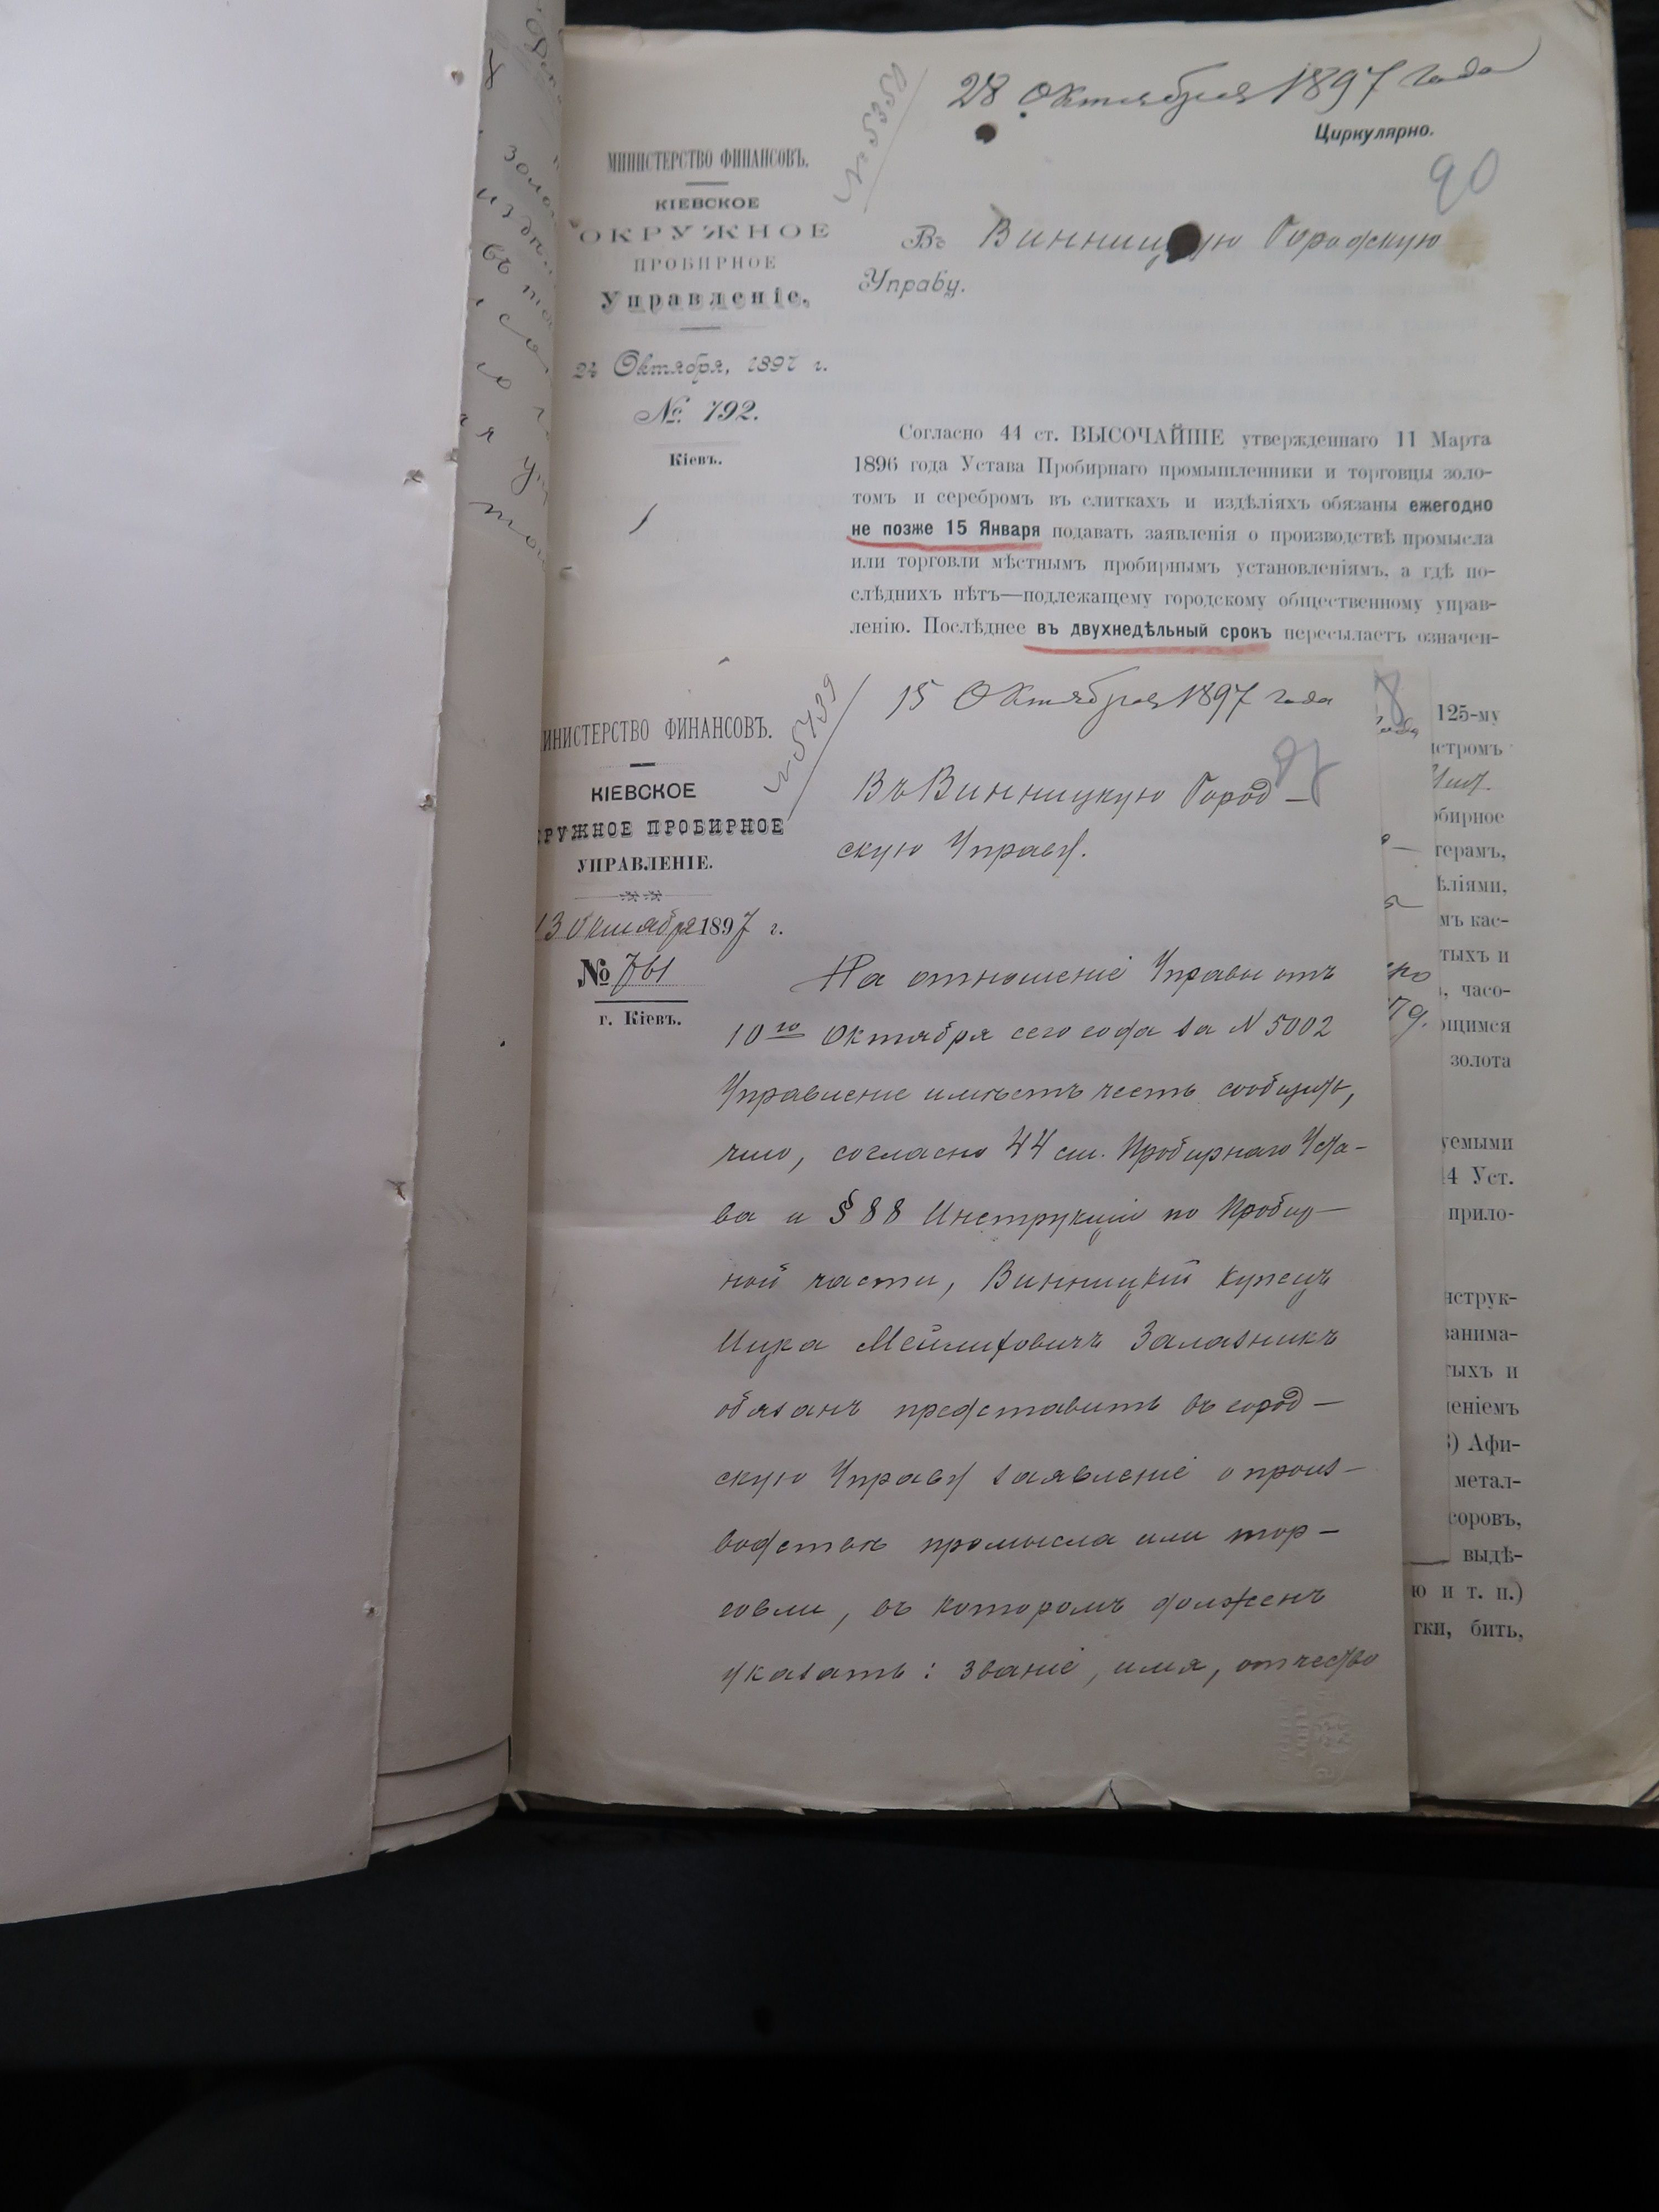 28 Октября 1897 года
№ 5350
Циркулярно.
90
МИНИСТЕРСТВО ФИНАНСОВЪ.
КІЕВСКОЕ
ОКРУЖНОЕ
ПРОБИРНОЕ
Управленіе,
24 Октября, 1897 г.
№ 792.
Кіевъ.
Въ Винницкую Городскую
Управу.
Согласно 44 ст. ВЫСОЧАЙШЕ утвержденнаго 11 Марта
1896 года Устава Пробирнаго промышленники и торговцы золо-
томъ и серебромъ въ слиткахъ и издѣліяхъ обязаны ежегодно
не позже 15 Января подавать заявленія о производствѣ промысла
или торговли мѣстнымъ пробирнымъ установленіямъ, а гдѣ по-
слѣднихъ нѣтъ—подлежащему городскому общественному управ-
ленію. Послѣднее въ двухнедѣльный срокъ пересылаетъ означен-
15 Октября 1897 года
87
ИНИСТЕРСТВО ФИНАНСОВЪ.
КІЕВСКОЕ
РУЖНОЕ ПРОБИРНОЕ
УПРАВЛЕНІЕ.
13 Октября 1897 г.
№ 761
г. Кіевъ.
Въ Винницкую Город-
скую Управу.
На отношеніе Управы отъ
10го Октября сего года за N 5002
Управление имѣетъ честь сообщить,
что, согласно 44 ст. Пробирнаго Уста-
ва и § 88 Инструкціи по Пробир-
ной части, Винницкій купецъ
Ицка Мейлиховичъ Залазникъ
обязанъ представить въ город-
скую Управу заявленіе о произ-
водствѣ промысла или тор-
говли, въ которомъ долженъ
указать: званіе, имя, отчество
125-му
стромъ
бирное
терамъ,
ѣліями,
мъ кас-
тыхъ и
, часо-
щимся
золота
уемыми
4 Уст.
прило-
нструк-
занима-
тыхъ и
леніемъ
) Афи-
метал-
соровъ,
выдѣ-
ю и т. п.)
тки, бить,